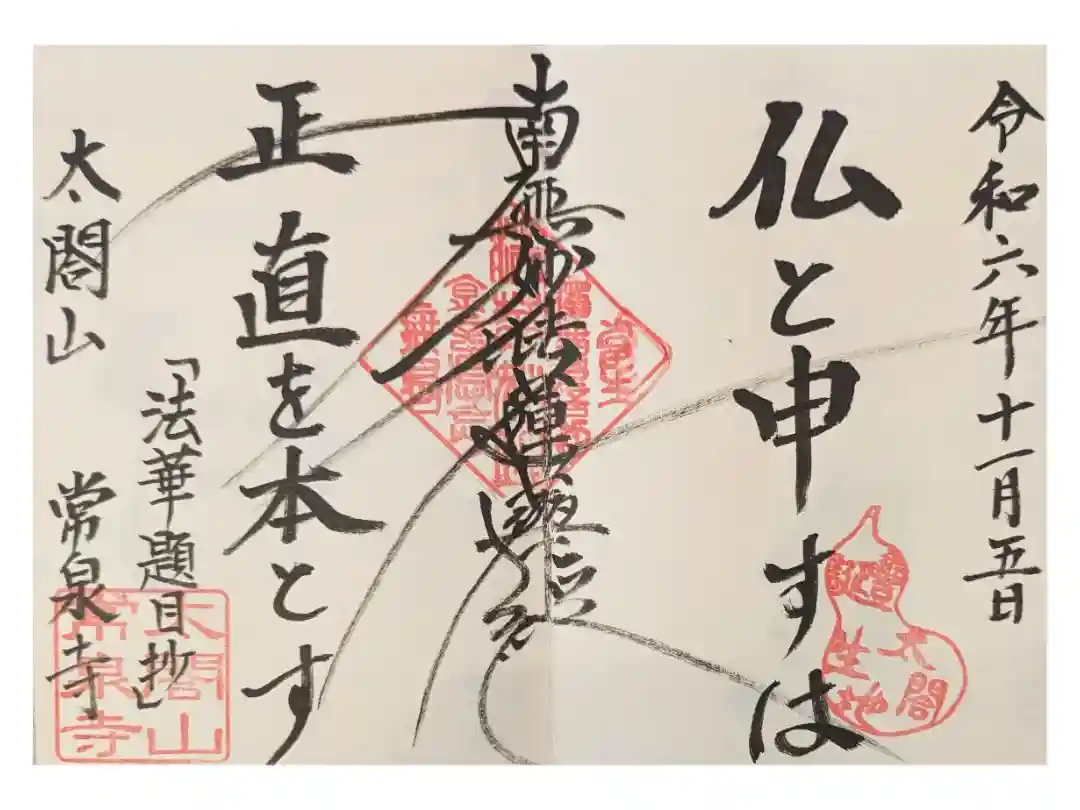 令和六年十一月五日
仏と申すは
南無妙法蓮華経
正直を本とす
「法華題目抄」
太閤山 常泉寺
豊太閤
誕生地
太閤山
常泉寺